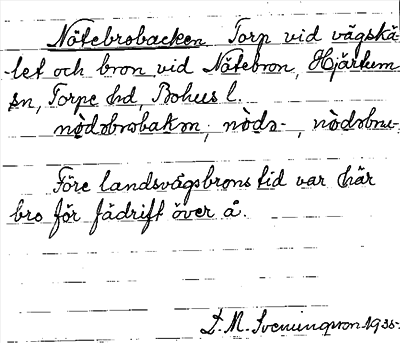 Nötebrobacken Torp vid vägskä-
let och bron vid Nötebron, Hjärtum
sn, Torpe hd, Bohus l.
nòdəbrobakən, nòdə-, nòdəbru-
Före landsvägsbrons tid var här
bro för fädrift över å.
F. M. Svenungsson 1935.